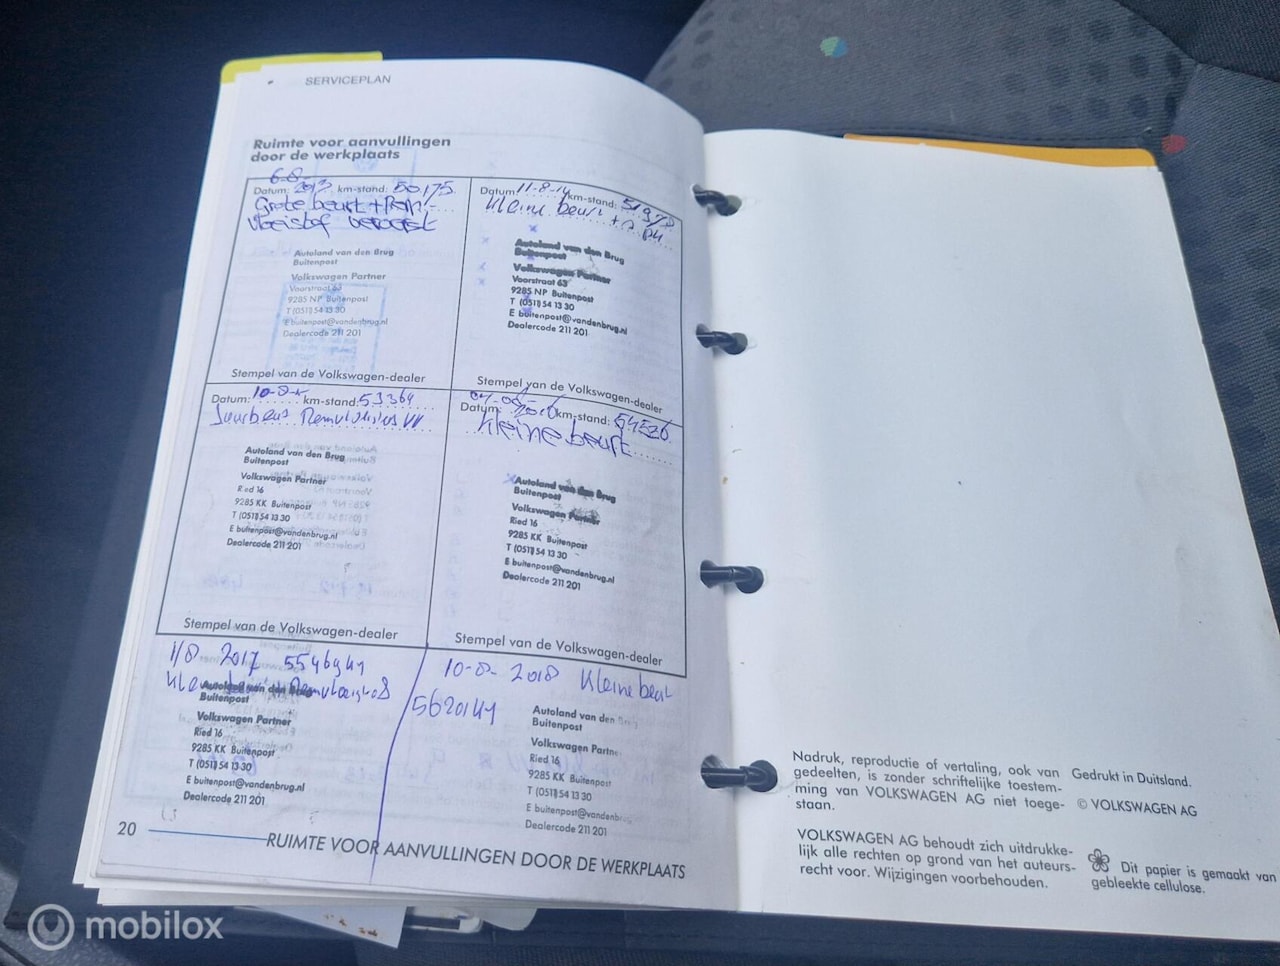 SERVICEPLAN
Ruimte voor aanvullingen
door de werkplaats
6-8-
Datum: 2013 km-stand: 50175
Grote beurt + Rem-
vloeistof ververst
Autoland van den Brug
Buitenpost
Volkswagen Partner
Voorstraat 63
9285 NP Buitenpost
T (0511) 54 13 30
E buitenpost@vandenbrug.nl
Dealercode 211 201
Stempel van de Volkswagen-dealer
Datum: 11-8-14 km-stand: 51978
Kleine beurt
Autoland van den Brug
Buitenpost
Volkswagen Partner
Voorstraat 63
9285 NP Buitenpost
T (0511) 54 13 30
E buitenpost@vandenbrug.nl
Dealercode 211 201
Stempel van de Volkswagen-dealer
Datum: km-stand: 53364
Autoland van den Brug
Buitenpost
Volkswagen Partner
Ried 16
9285 KK Buitenpost
T (0511) 54 13 30
E buitenpost@vandenbrug.nl
Dealercode 211 201
Stempel van de Volkswagen-dealer
Datum: 2016 km-stand: 54526
Kleine beurt
Autoland van den Brug
Buitenpost
Volkswagen Partner
Ried 16
9285 KK Buitenpost
T (0511) 54 13 30
E buitenpost@vandenbrug.nl
Dealercode 211 201
Stempel van de Volkswagen-dealer
1/8 2017 55469km
Autoland van den Brug
Buitenpost
Volkswagen Partner
Ried 16
9285 KK Buitenpost
T (0511) 54 13 30
E buitenpost@vandenbrug.nl
Dealercode 211 201
10-8-2018 Kleine beurt
56201km
Autoland van den Brug
Buitenpost
Volkswagen Partner
Ried 16
9285 KK Buitenpost
T (0511) 54 13 30
E buitenpost@vandenbrug
Dealercode 211 201
20 RUIMTE VOOR AANVULLINGEN DOOR DE WERKPLAATS
Nadruk, reproductie of vertaling, ook van
gedeelten, is zonder schriftelijke toestem-
ming van VOLKSWAGEN AG niet toege-
staan.
VOLKSWAGEN AG behoudt zich uitdrukke-
lijk alle rechten op grond van het auteurs-
recht voor. Wijzigingen voorbehouden.
Gedrukt in Duitsland.
© VOLKSWAGEN AG
Dit papier is gemaakt van
gebleekte cellulose.
mobilox